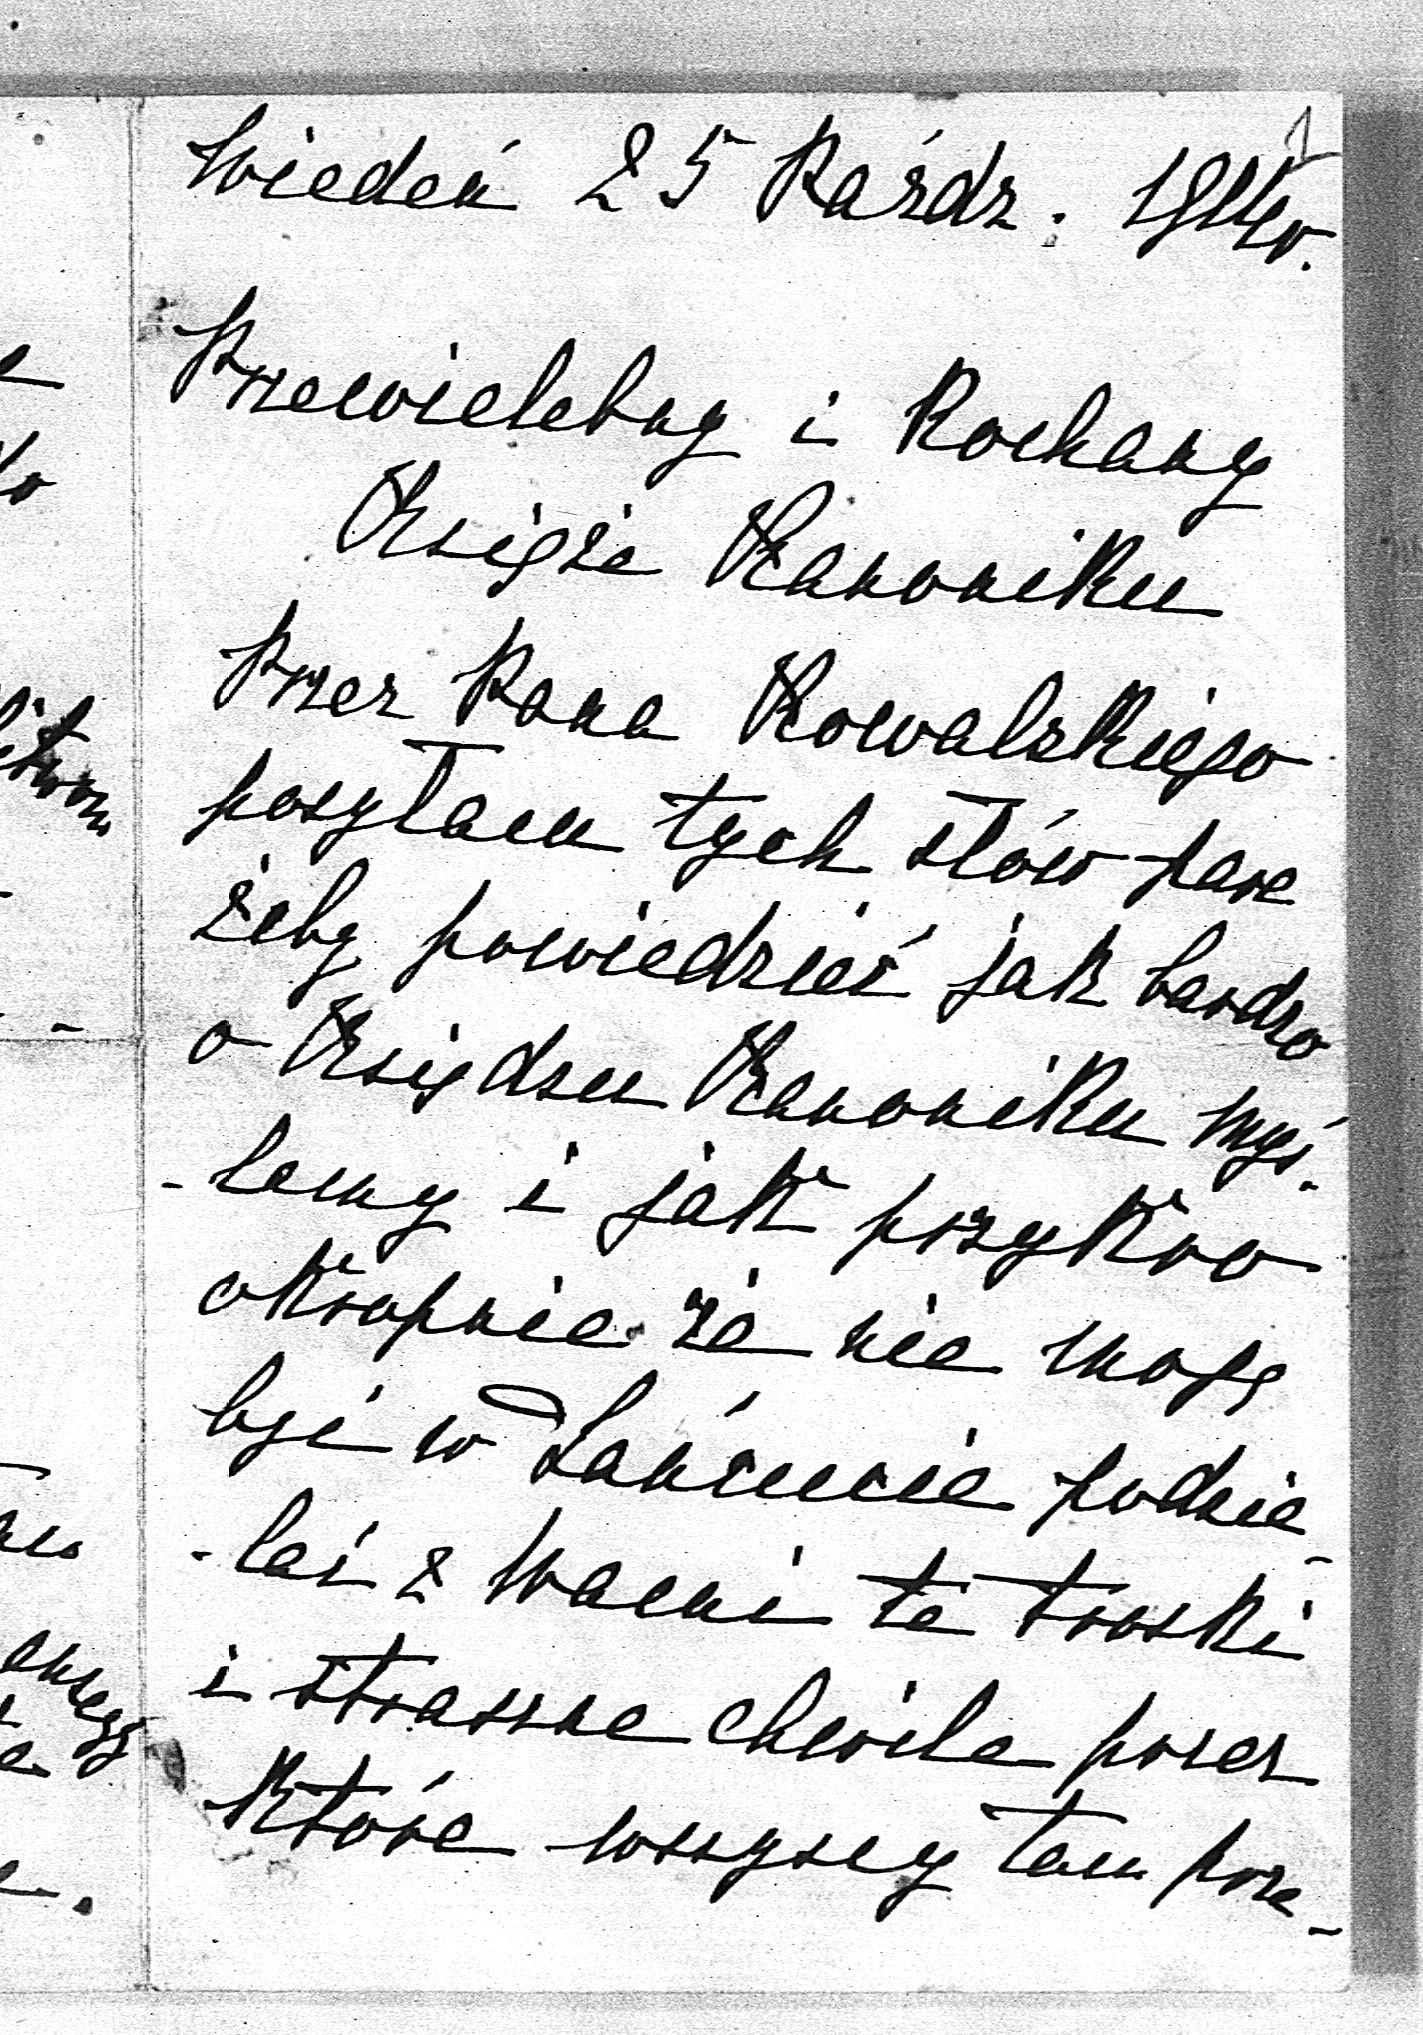 Wiedeń 25 Paźdz. 1914r.
Przewielebny i Kochany
Księże Kanoniku
Przez Pana Kowalskiego
posyłam tych słów parę
żeby powiedzieć jak bardzo
o Księdzu Kanoniku myś-
-lemy i jak przykro
okropnie że nie mogę
być w Łańcucie podzie-
-lać z Wami te troski
i straszne chwile przez
które wszyscy tam prze-